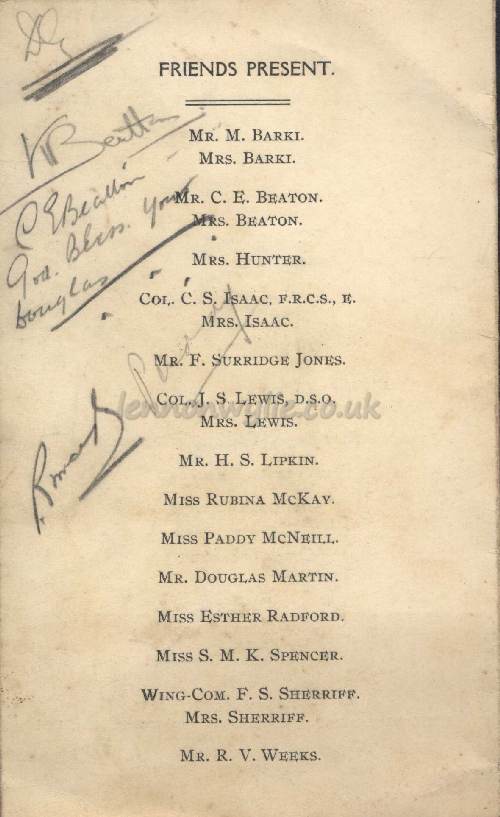 FRIENDS PRESENT.
MR. M. BARKI.
MRS. BARKI.
MR. C. E. BEATON.
MRS. BEATON.
MRS. HUNTER.
COL. C. S. ISAAC, F.R.C.S., E.
MRS. ISAAC.
MR. F. SURRIDGE JONES.
COL. J. S. LEWIS, D.S.O.
MRS. LEWIS.
MR. H. S. LIPKIN.
MISS RUBINA MCKAY.
MISS PADDY MCNEILL.
MR. DOUGLAS MARTIN.
MISS ESTHER RADFORD.
MISS S. M. K. SPENCER.
WING-COM. F. S. SHERRIFF.
MRS. SHERRIFF.
MR. R. V. WEEKS.
Beatton
C E Beatton
God. Bless. You
Douglas
lennonwylie.co.uk